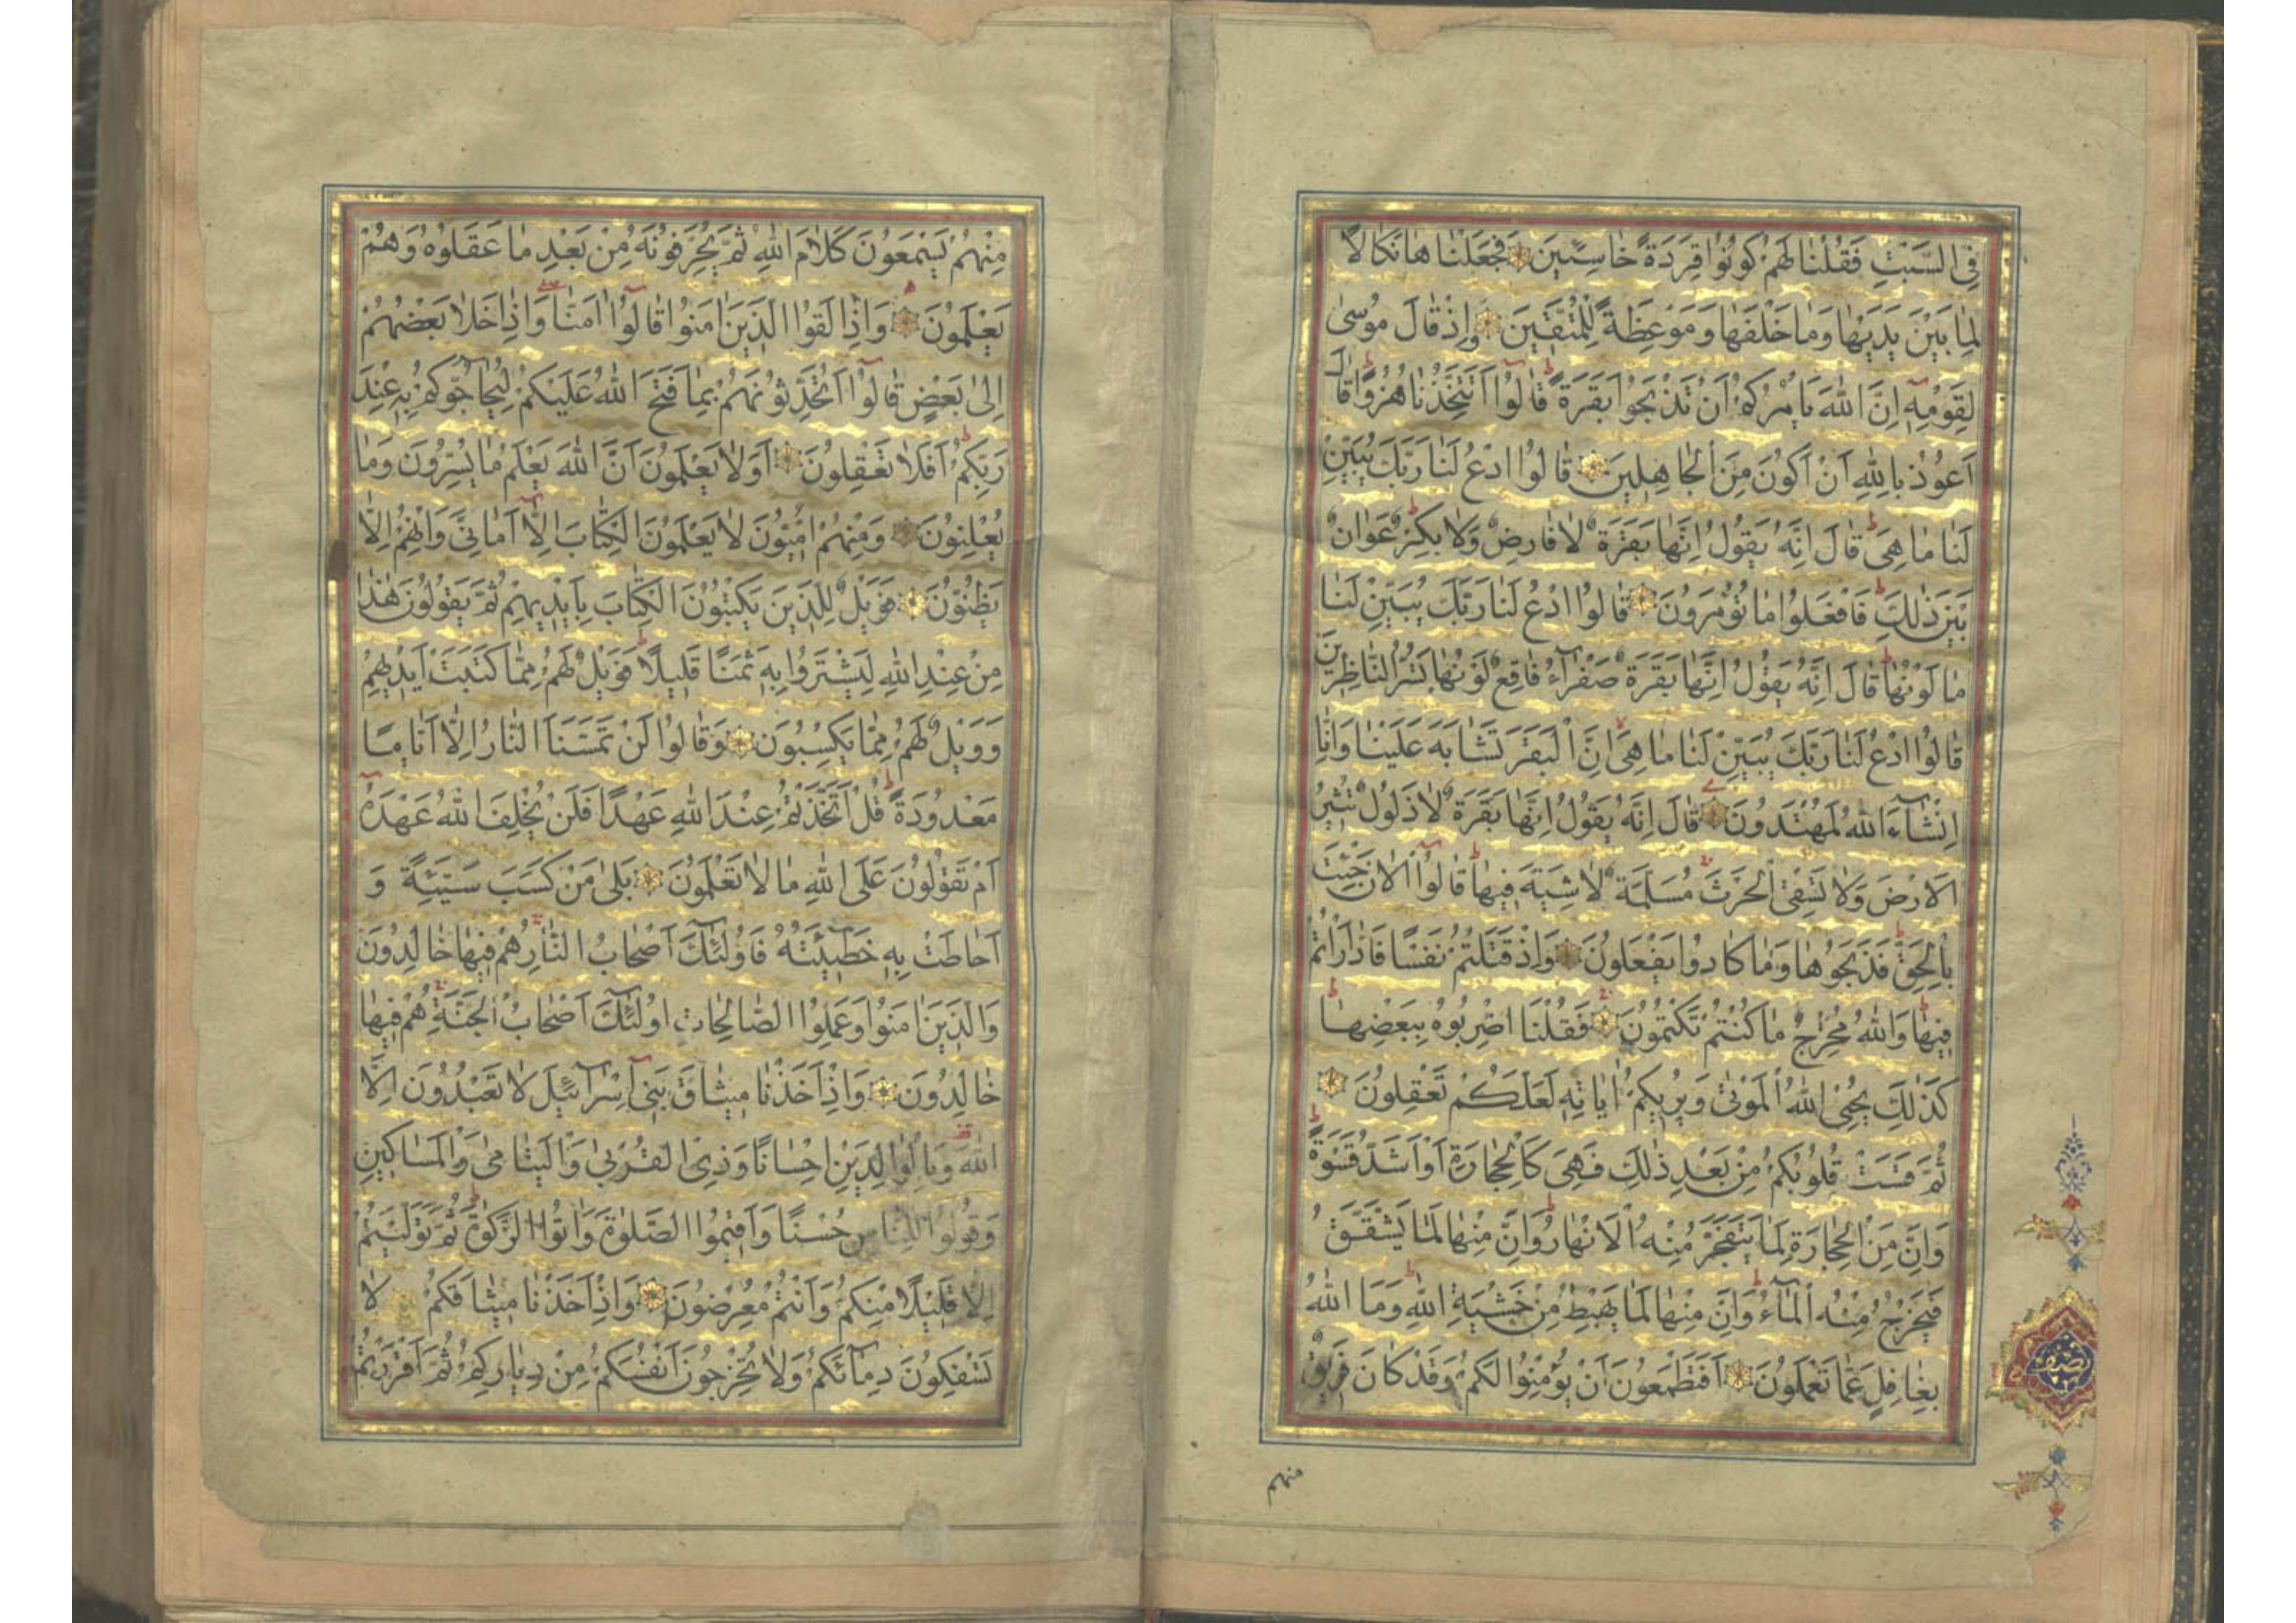 فِي السَّبْتِ فَقُلْنَا لَهُمْ كُونُوا قِرَدَةً خَاسِئِينَ فَجَعَلْنَاهَا نَكَالًا
لِمَا بَيْنَ يَدَيْهَا وَمَا خَلْفَهَا وَمَوْعِظَةً لِلْمُتَّقِينَ وَإِذْ قَالَ مُوسَى
لِقَوْمِهِ إِنَّ اللَّهَ يَأْمُرُكُمْ أَنْ تَذْبَحُوا بَقَرَةً قَالُوا أَتَتَّخِذُنَا هُزُوًا قَالَ
أَعُوذُ بِاللَّهِ أَنْ أَكُونَ مِنَ الْجَاهِلِينَ قَالُوا ادْعُ لَنَا رَبَّكَ يُبَيِّنْ
لَنَا مَا هِيَ قَالَ إِنَّهُ يَقُولُ إِنَّهَا بَقَرَةٌ لَا فَارِضٌ وَلَا بِكْرٌ عَوَانٌ
بَيْنَ ذَلِكَ فَافْعَلُوا مَا تُؤْمَرُونَ قَالُوا ادْعُ لَنَا رَبَّكَ يُبَيِّنْ لَنَا
مَا لَوْنُهَا قَالَ إِنَّهُ يَقُولُ إِنَّهَا بَقَرَةٌ صَفْرَاءُ فَاقِعٌ لَوْنُهَا تَسُرُّ النَّاظِرِينَ
قَالُوا ادْعُ لَنَا رَبَّكَ يُبَيِّنْ لَنَا مَا هِيَ إِنَّ الْبَقَرَ تَشَابَهَ عَلَيْنَا وَإِنَّا
إِنْشَاءَ اللَّهُ لَمُهْتَدُونَ قَالَ إِنَّهُ يَقُولُ إِنَّهَا بَقَرَةٌ لَا ذَلُولٌ تُثِيرُ
الْأَرْضَ وَلَا تَسْقِي الْحَرْثَ مُسَلَّمَةٌ لَا شِيَةَ فِيهَا قَالُوا الْآنَ جِئْتَ
بِالْحَقِّ فَذَبَحُوهَا وَمَا كَادُوا يَفْعَلُونَ وَإِذْ قَتَلْتُمْ نَفْسًا فَادَّارَأْتُمْ
فِيهَا وَاللَّهُ مُخْرِجٌ مَا كُنْتُمْ تَكْتُمُونَ فَقُلْنَا اضْرِبُوهُ بِبَعْضِهَا
كَذَلِكَ يُحْيِي اللَّهُ الْمَوْتَى وَيُرِيكُمْ آيَاتِهِ لَعَلَّكُمْ تَعْقِلُونَ
ثُمَّ قَسَتْ قُلُوبُكُمْ مِنْ بَعْدِ ذَلِكَ فَهِيَ كَالْحِجَارَةِ أَوْ أَشَدُّ قَسْوَةً
وَإِنَّ مِنَ الْحِجَارَةِ لَمَا يَتَفَجَّرُ مِنْهُ الْأَنْهَارُ وَإِنَّ مِنْهَا لَمَا يَشَّقَّقُ
فَيَخْرُجُ مِنْهُ الْمَاءُ وَإِنَّ مِنْهَا لَمَا يَهْبِطُ مِنْ خَشْيَةِ اللَّهِ وَمَا اللَّهُ
بِغَافِلٍ عَمَّا تَعْمَلُونَ أَفَتَطْمَعُونَ أَنْ يُؤْمِنُوا لَكُمْ وَقَدْ كَانَ فَرِيقٌ
منهم
نصف
مِنْهُمْ يَسْمَعُونَ كَلَامَ اللَّهِ ثُمَّ يُحَرِّفُونَهُ مِنْ بَعْدِ مَا عَقَلُوهُ وَهُمْ
يَعْلَمُونَ وَإِذَا لَقُوا الَّذِينَ آمَنُوا قَالُوا آمَنَّا وَإِذَا خَلَا بَعْضُهُمْ
إِلَى بَعْضٍ قَالُوا أَتُحَدِّثُونَهُمْ بِمَا فَتَحَ اللَّهُ عَلَيْكُمْ لِيُحَاجُّوكُمْ بِهِ عِنْدَ
رَبِّكُمْ أَفَلَا تَعْقِلُونَ أَوَلَا يَعْلَمُونَ أَنَّ اللَّهَ يَعْلَمُ مَا يُسِرُّونَ وَمَا
يُعْلِنُونَ وَمِنْهُمْ أُمِّيُّونَ لَا يَعْلَمُونَ الْكِتَابَ إِلَّا أَمَانِيَّ وَإِنْ هُمْ إِلَّا
يَظُنُّونَ فَوَيْلٌ لِلَّذِينَ يَكْتُبُونَ الْكِتَابَ بِأَيْدِيهِمْ ثُمَّ يَقُولُونَ هَذَا
مِنْ عِنْدِ اللَّهِ لِيَشْتَرُوا بِهِ ثَمَنًا قَلِيلًا فَوَيْلٌ لَهُمْ مِمَّا كَتَبَتْ أَيْدِيهِمْ
وَوَيْلٌ لَهُمْ مِمَّا يَكْسِبُونَ وَقَالُوا لَنْ تَمَسَّنَا النَّارُ إِلَّا أَيَّامًا
مَعْدُودَةً قُلْ أَتَّخَذْتُمْ عِنْدَ اللَّهِ عَهْدًا فَلَنْ يُخْلِفَ اللَّهُ عَهْدَهُ
أَمْ تَقُولُونَ عَلَى اللَّهِ مَا لَا تَعْلَمُونَ بَلَى مَنْ كَسَبَ سَيِّئَةً وَ
أَحَاطَتْ بِهِ خَطِيئَتُهُ فَأُولَئِكَ أَصْحَابُ النَّارِ هُمْ فِيهَا خَالِدُونَ
وَالَّذِينَ آمَنُوا وَعَمِلُوا الصَّالِحَاتِ أُولَئِكَ أَصْحَابُ الْجَنَّةِ هُمْ فِيهَا
خَالِدُونَ وَإِذْ أَخَذْنَا مِيثَاقَ بَنِي إِسْرَائِيلَ لَا تَعْبُدُونَ إِلَّا
اللَّهَ وَبِالْوَالِدَيْنِ إِحْسَانًا وَذِي الْقُرْبَى وَالْيَتَامَى وَالْمَسَاكِينِ
وَقُولُوا لِلنَّاسِ حُسْنًا وَأَقِيمُوا الصَّلَوةَ وَآتُوا الزَّكَوةَ ثُمَّ تَوَلَّيْتُمْ
إِلَّا قَلِيلًا مِنْكُمْ وَأَنْتُمْ مُعْرِضُونَ وَإِذْ أَخَذْنَا مِيثَاقَكُمْ لَا
تَسْفِكُونَ دِمَائَكُمْ وَلَا تُخْرِجُونَ أَنْفُسَكُمْ مِنْ دِيَارِكُمْ ثُمَّ أَقْرَرْتُمْ